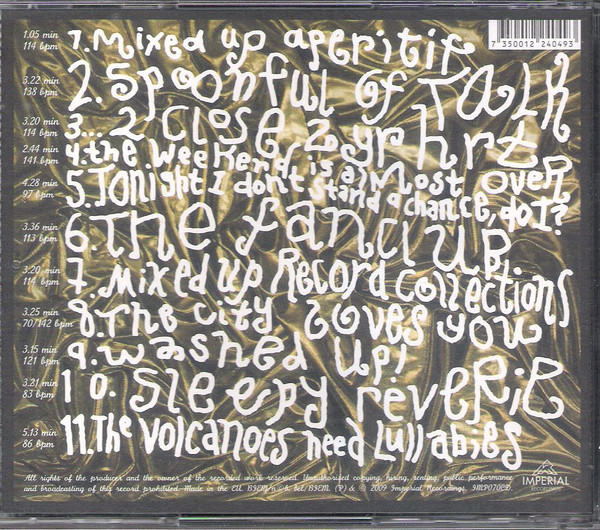 7 350012 240493
1.05 min
114 bpm
1. Mixed up aperitif
3.22 min
138 bpm
2. Spoonful of TALK
3.20 min
114 bpm
3... 2 Close 2 yr hrt
2.44 min
141 bpm
4. the weekend is almost over
4.28 min
97 bpm
5. Tonight I don't stand a chance, do I?
3.36 min
113 bpm
6. The fanclub
3.20 min
114 bpm
7. Mixed up Record collections
3.25 min
70/142 bpm
8. The city loves you
3.15 min
121 bpm
9. washed up!
3.21 min
83 bpm
10. Sleepy reveRiE
5.13 min
86 bpm
11. The volcanoes need lullabies
All rights of the producer and the owner of the recorded work reserved. Unauthorised copying, hiring, renting, public performance
and broadcasting of this record prohibited. Made in the EU. BIEM/n©b. bel/BIEM. (P) & © 2009 Imperial Recordings. IMP070CD.
IMPERIAL
Recordings